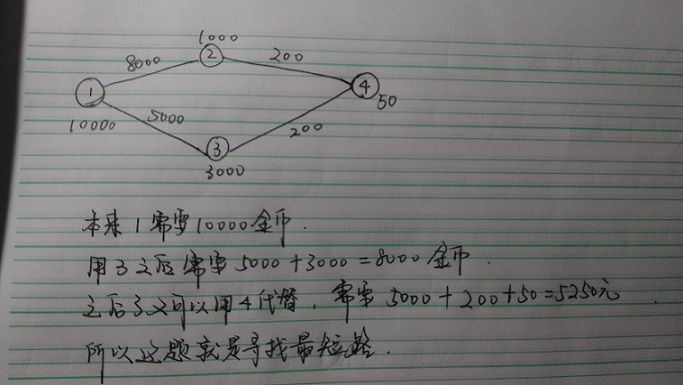 1000
8000
②
200
①
④
50
10000
5000
200
③
3000
本来1需要10000金币.
用3之后需要5000+3000=8000金币.
之后3又可以用4代替,需要5000+200+50=5250元.
所以这题就是寻找最短路.